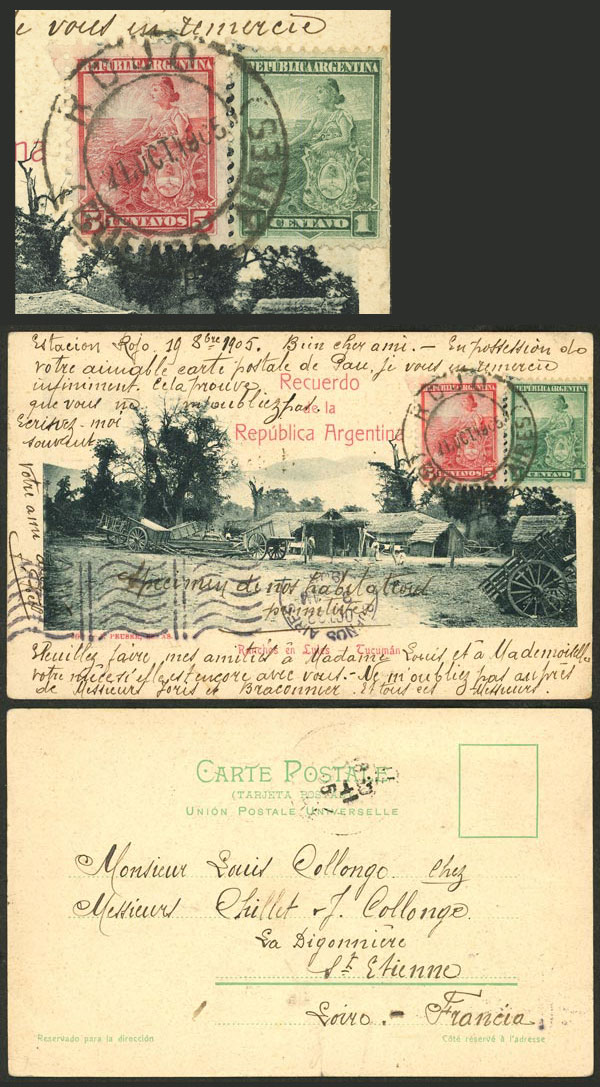 e vous en remercie
REPUBLICA ARGENTINA
REPUBLICA ARGENTINA
ROJO
BUENOS AIRES
5 CENTAVOS 5
1 CENTAVO 1
na
Estacion Rojo. 19 8bre 1905. Bien cher ami. — En possession de
votre aimable carte postale de Pau, je vous en remercie
infiniment. Cela prouve
que vous ne m'oubliez pas.
Ecrivez-moi
souvent
Votre ami
Recuerdo
de la
República Argentina
REPUBLICA ARGENTINA
REPUBLICA ARGENTINA
ROJO
5 CENTAVOS 5
CENTAVO 1
Specimen de nos habitations
primitives
BUENOS AIRES
Ranchos en Lules Tucumán
Veuillez faire mes amitiés à Madame Louis et à Mademoiselle
votre nièce si elle est encore avec vous. — Ne m'oubliez pas auprès
de Messieurs Joris et Braconnier. Et tous ces Messieurs.
CARTE POSTALE
(TARJETA POSTAL)
UNIÓN POSTALE UNIVERSELLE
Monsieur Louis Collonge chez
Messieurs Chillet & J. Collonge
La Digonnière
St Etienne
Loire. — Francia
Reservado para la dirección
Côté réservé à l'adresse